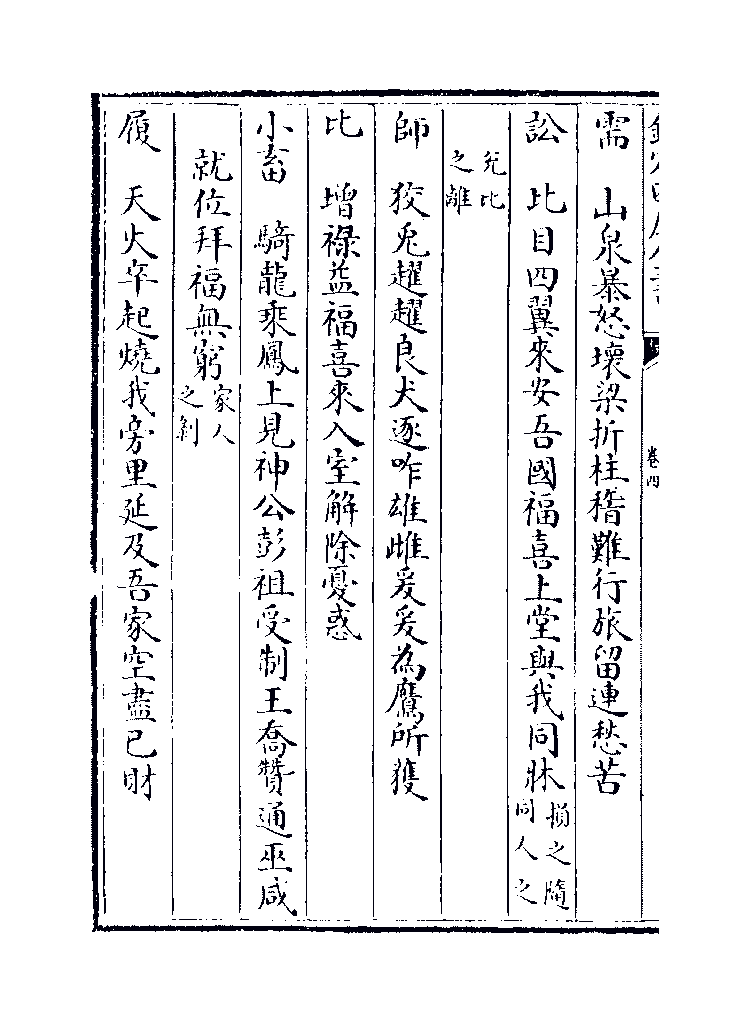 卷四
需　山泉暴怒壞梁折柱稽難行旅留連愁苦
訟　比目四翼來安吾國福喜上堂與我同牀損之隨同人之
兊比之離
師　狡兎趯趯良犬逐咋雄雌爰爰為鷹所獲
比　增祿益福喜來入室解除憂惑
小畜　騎龍乘鳳上見神公彭祖受制王喬贊通巫咸
就位拜福無窮家人之剝
履　天火卒起燒我旁里延及吾家空盡已財